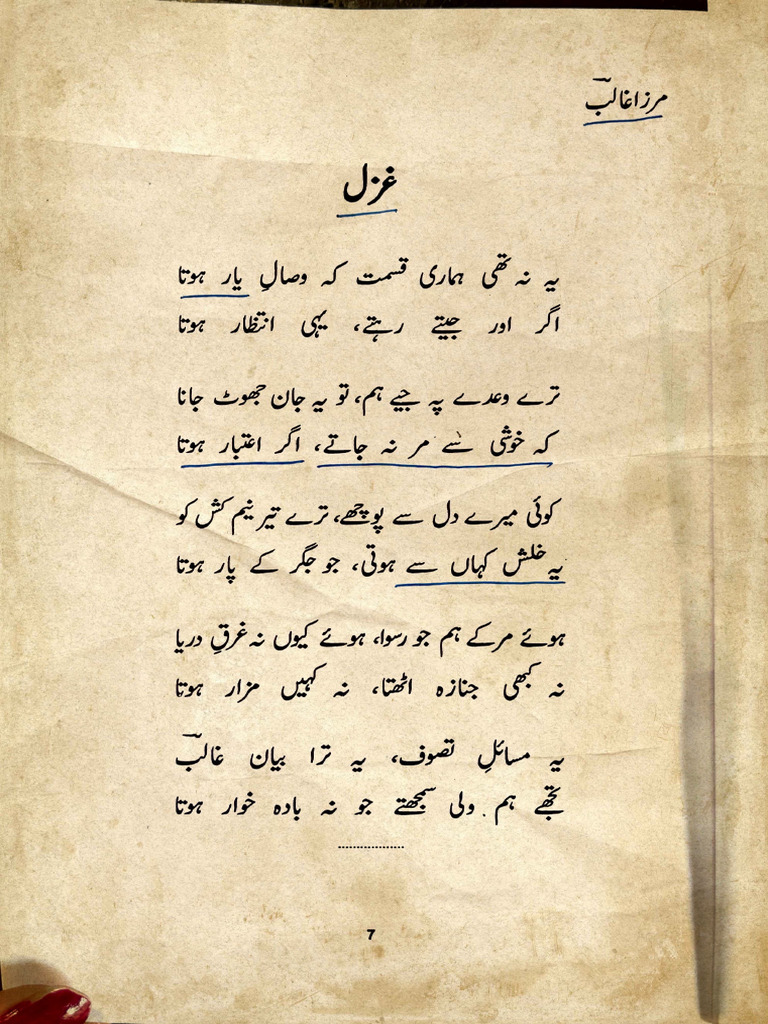 مرزا غالبؔ
غزل
یہ نہ تھی ہماری قسمت کہ وصالِ یار ہوتا
اگر اور جیتے رہتے، یہی انتظار ہوتا
ترے وعدے پہ جیے ہم، تو یہ جان جھوٹ جانا
کہ خوشی سے مر نہ جاتے، اگر اعتبار ہوتا
کوئی میرے دل سے پوچھے، ترے تیر نیم کش کو
یہ خلش کہاں سے ہوتی، جو جگر کے پار ہوتا
ہوئے مر کے ہم جو رسوا، ہوئے کیوں نہ غرقِ دریا
نہ کبھی جنازہ اٹھتا، نہ کہیں مزار ہوتا
یہ مسائلِ تصوف، یہ ترا بیان غالبؔ
تجھے ہم ولی سمجھتے جو نہ بادہ خوار ہوتا
7